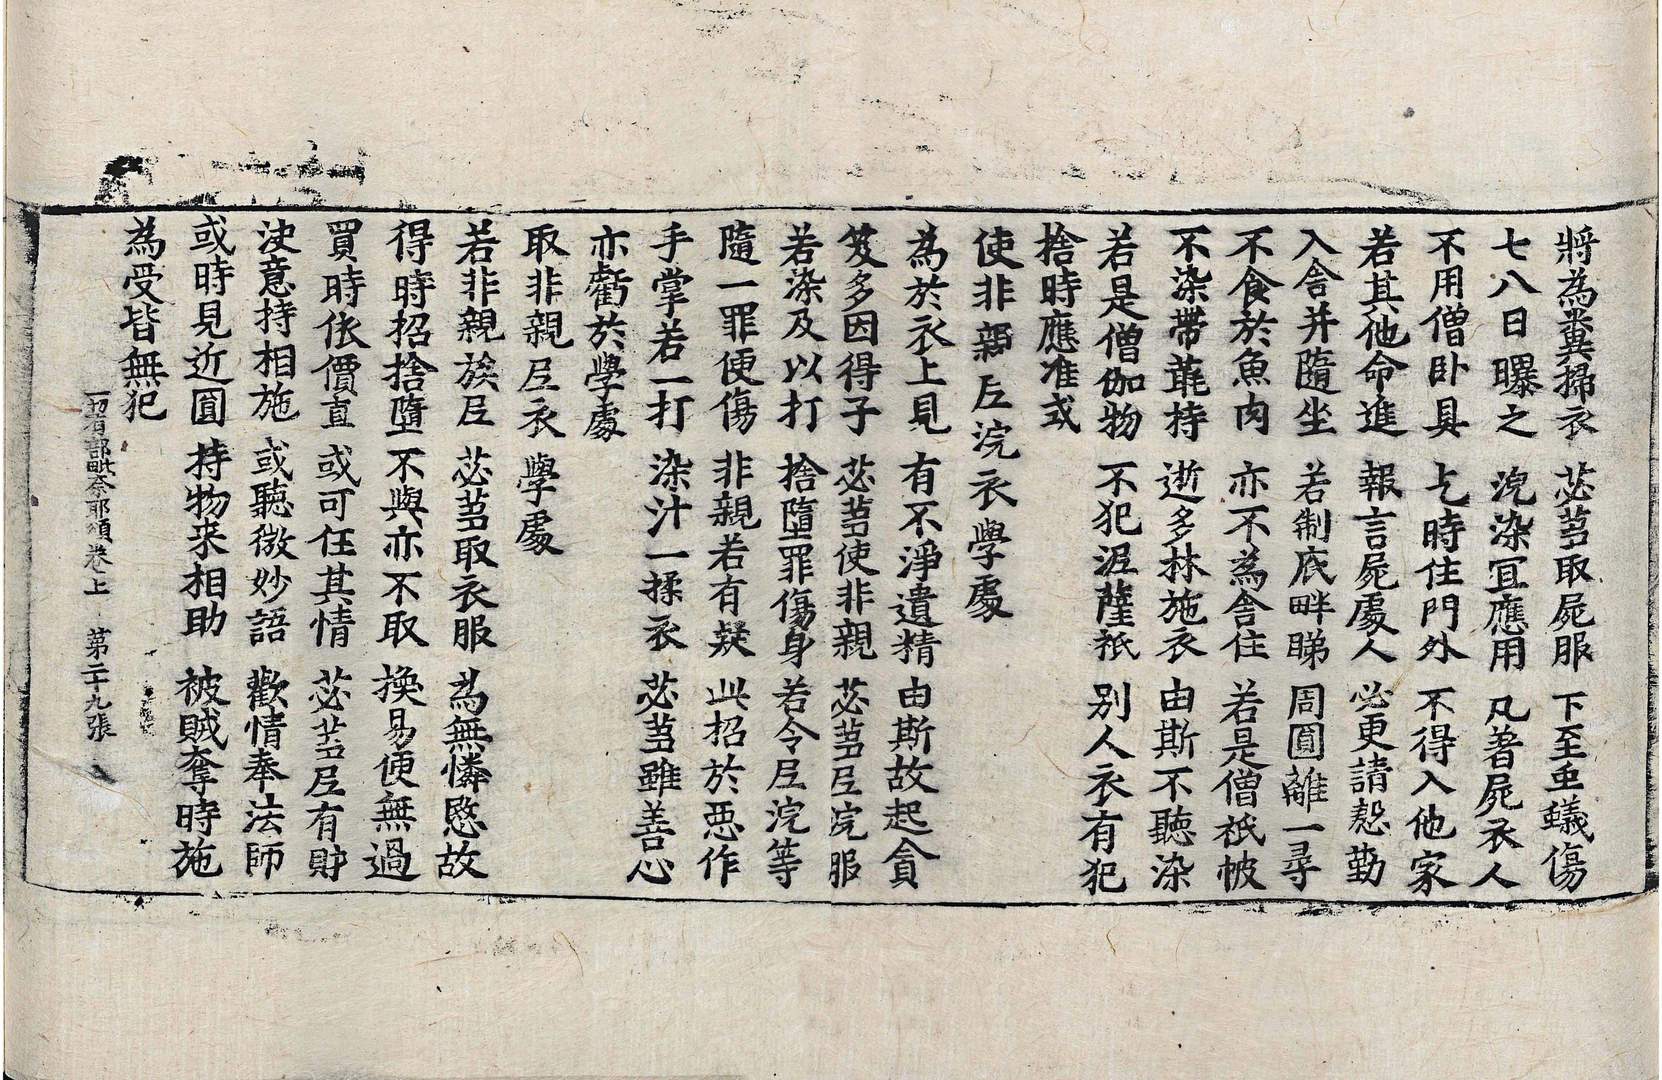 將為糞掃衣 苾芻取屍服 下至䖝蟻傷
七八日曝之 浣染冝應用 凡著屍衣人
不用僧卧具 乞時住門外 不得入他家
若其他命進 報言屍處人 必更請慇勤
入舎并隨坐 若制底畔睇 周圓離一尋
不食於魚肉 亦不為舎住 若是僧祇帔
不染帶氎持 逝多林施衣 由斯不聽染
若是僧伽物 不犯泥薩祇 别人衣有犯
捨時應准或
使非親𡰱浣衣學處
為於衣上見 有不淨遺精 由斯故起貪
笈多因得子 苾芻使非親 苾芻𡰱浣服
若染及以打 捨墮罪傷身 若令𡰱浣等
隨一罪便傷 非親若有疑 此招於惡作
手掌若一打 染汁一揉衣 苾芻雖善心
亦虧於學處
取非親𡰱衣學處
若非親族𡰱 苾芻取衣服 為無憐愍故
得時招捨墮 不與亦不取 換易便無過
買時依價直 或可任其情 苾芻𡰱有財
決意持相施 或聽微妙語 歡情奉法師
或時見近圓 持物来相助 被賊奪時施
為受皆無犯
一切有部毗奈耶頌卷上 第二十九張